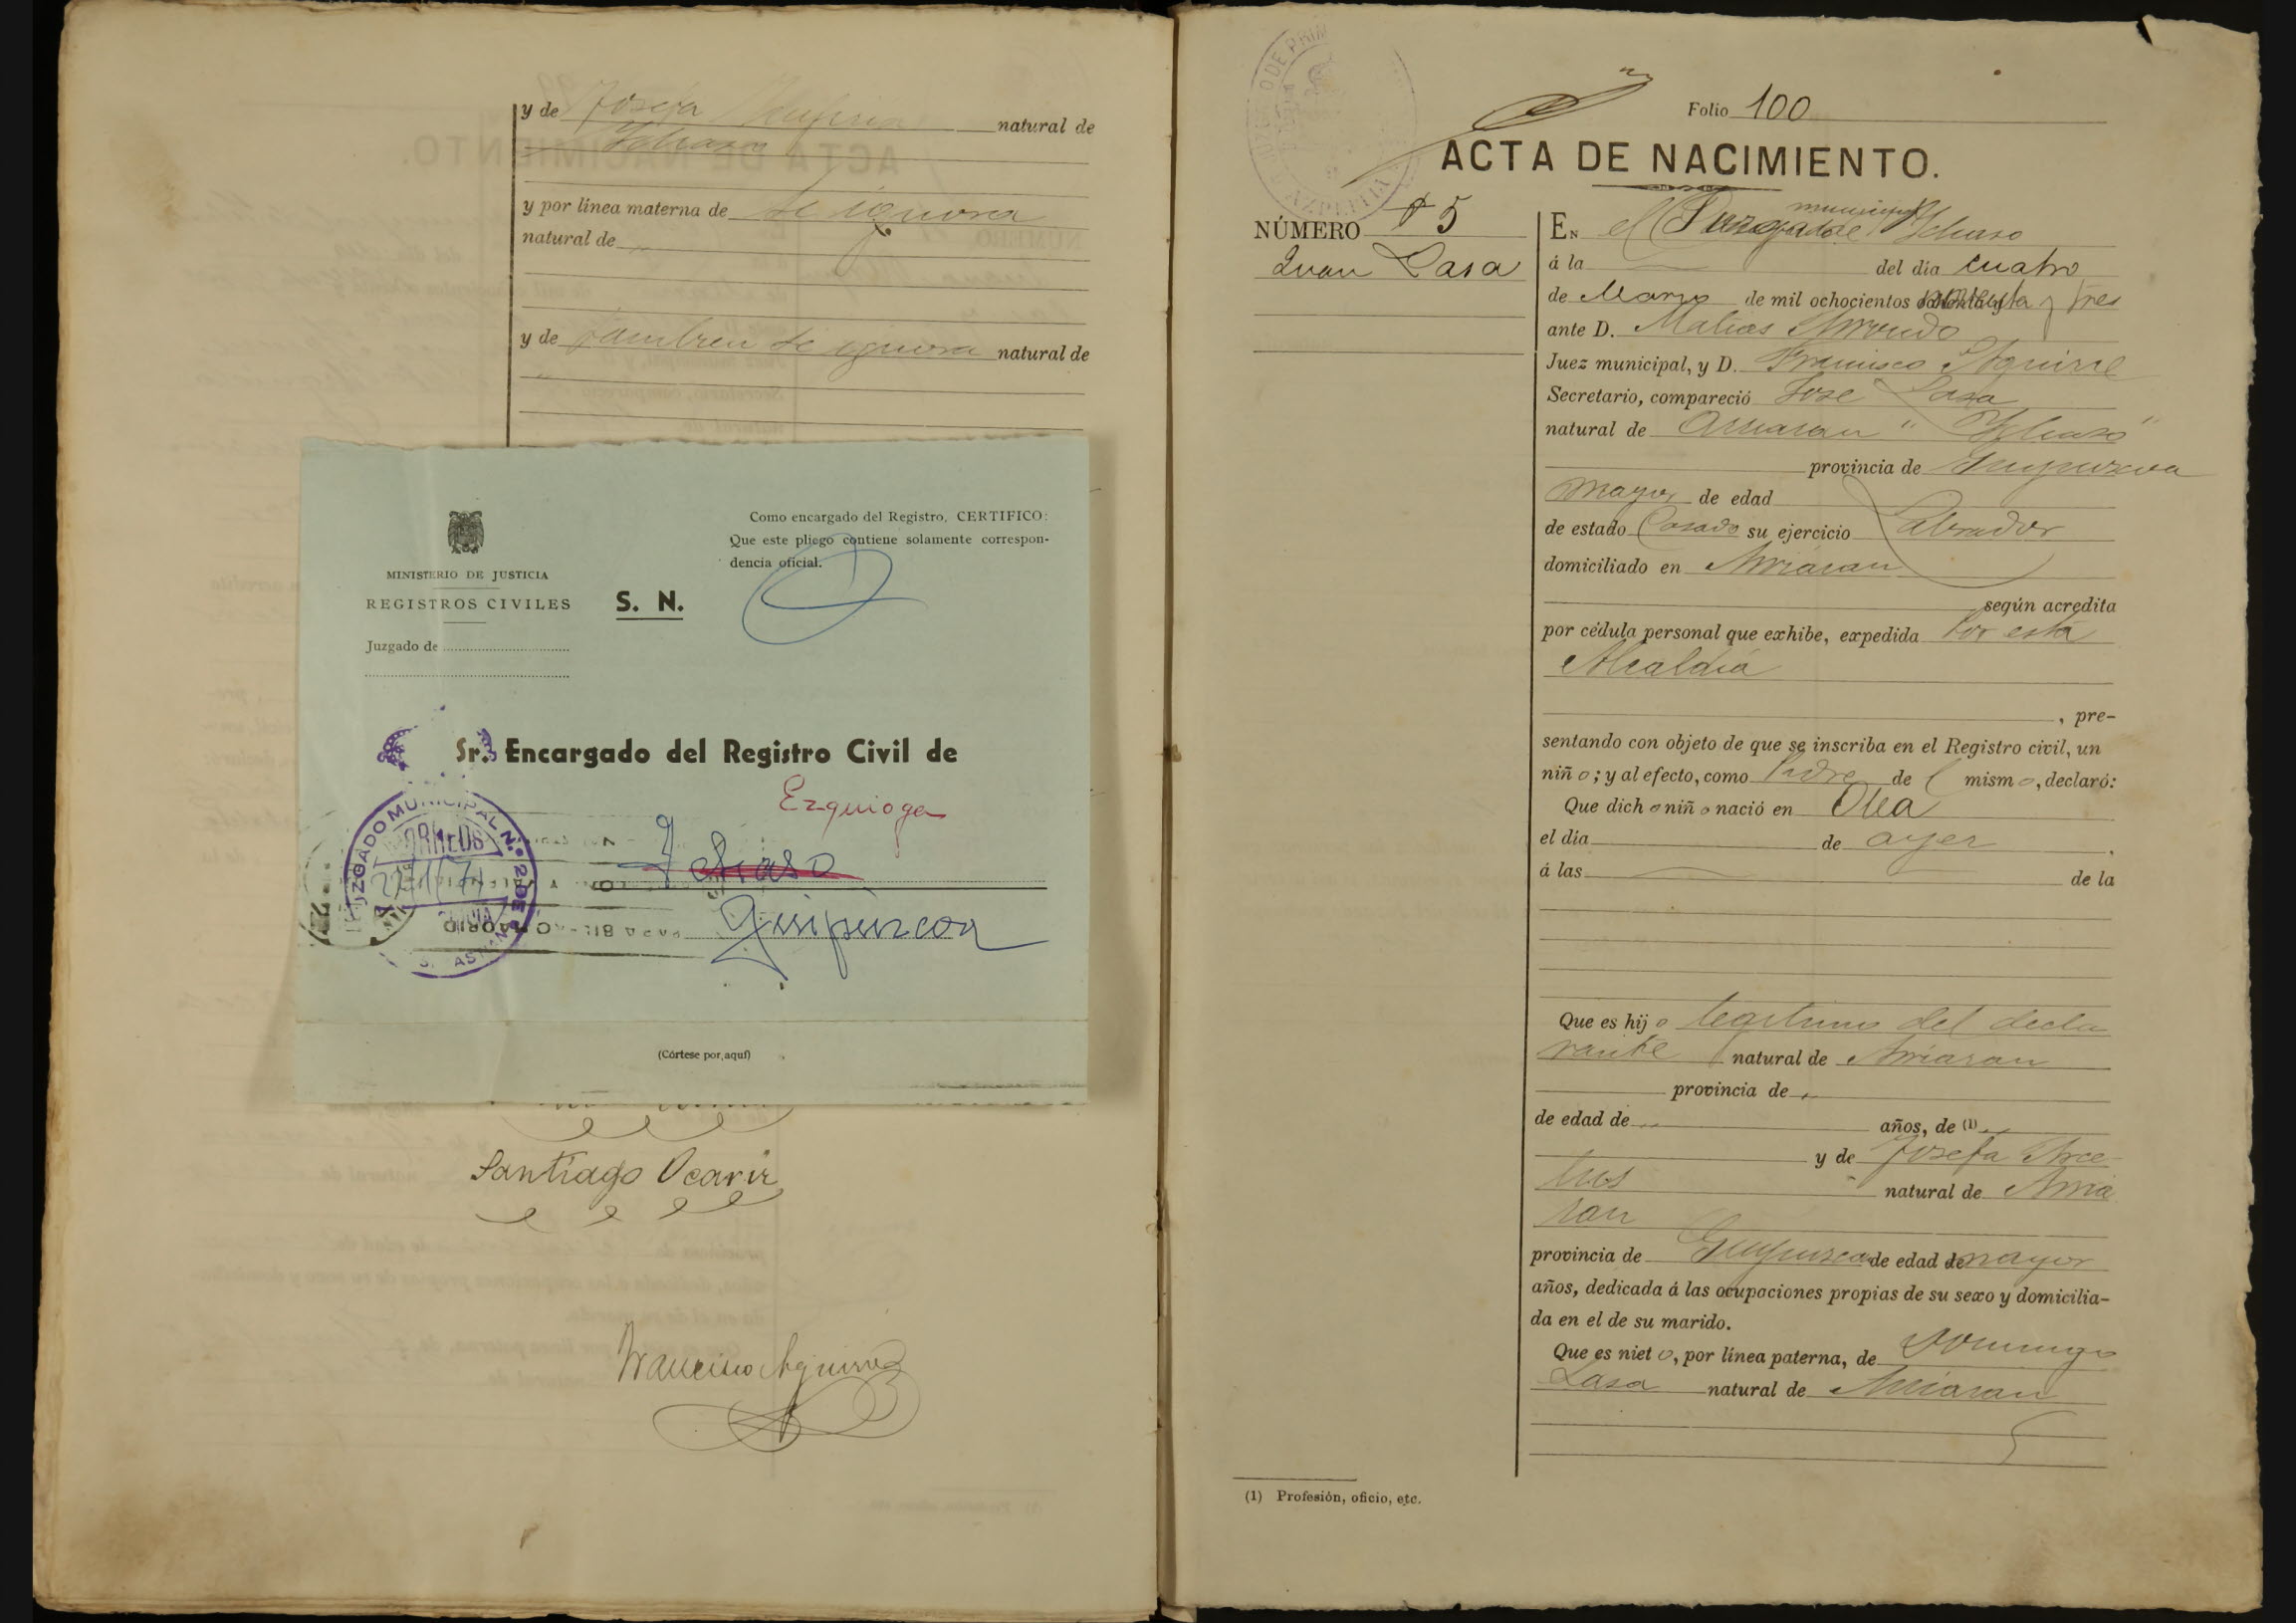 y de Josefa natural de
Ichaso
y por línea materna de Se ignora
natural de
y de tambien se ignora natural de
MINISTERIO DE JUSTICIA
REGISTROS CIVILES
Juzgado de
S. N.
Como encargado del Registro, CERTIFICO:
Que este pliego contiene solamente correspon-
dencia oficial.
Sr. Encargado del Registro Civil de
Ezquioga
Ichaso
Guipúzcoa
JUZGADO MUNICIPAL N.º 2 DE
CORREOS
(Córtese por aquí)
Santiago Ocariz
Francisco Aguirre
Folio 100
ACTA DE NACIMIENTO.
NÚMERO 5
Juan Lasa
En el Juzgado municipal de Ichaso
á la del día cuatro
de Marzo de mil ochocientos noventa y tres
ante D. Matias
Juez municipal, y D. Francisco Aguirre
Secretario, compareció Jose Lasa
natural de Arriaran " Ychaso "
provincia de Guipuzcoa
mayor de edad
de estado Casado su ejercicio Labrador
domiciliado en Arriaran
según acredita
por cédula personal que exhibe, expedida por esta
Alcaldia
, pre-
sentando con objeto de que se inscriba en el Registro civil, un
niño; y al efecto, como Padre del mismo, declaró:
Que dicho niño nació en Olea
el día de ayer
á las de la
Que es hijo legitimo del decla
rante natural de Arriaran
provincia de "
de edad de " años, de (1) "
y de Josefa Arce-
lus natural de Arria
ran
provincia de Guipuzcoa de edad de mayor
años, dedicada á las ocupaciones propias de su sexo y domicilia-
da en el de su marido.
Que es nieto, por línea paterna, de Domingo
Lasa natural de Arriaran
(1) Profesión, oficio, etc.